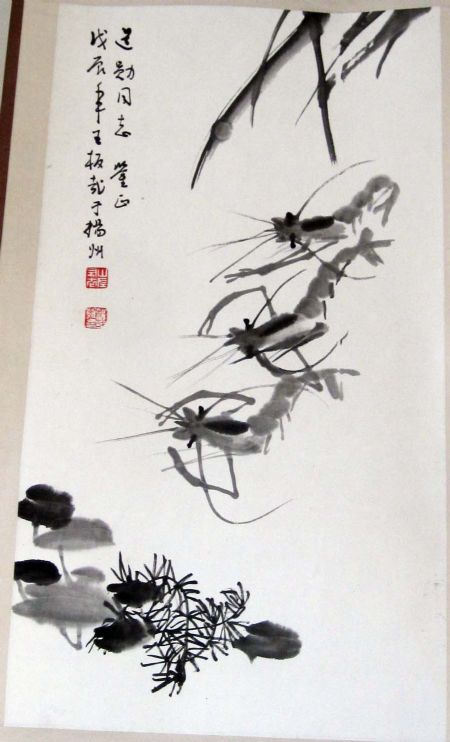 道勋同志 鉴正
戊辰年王板哉于扬州